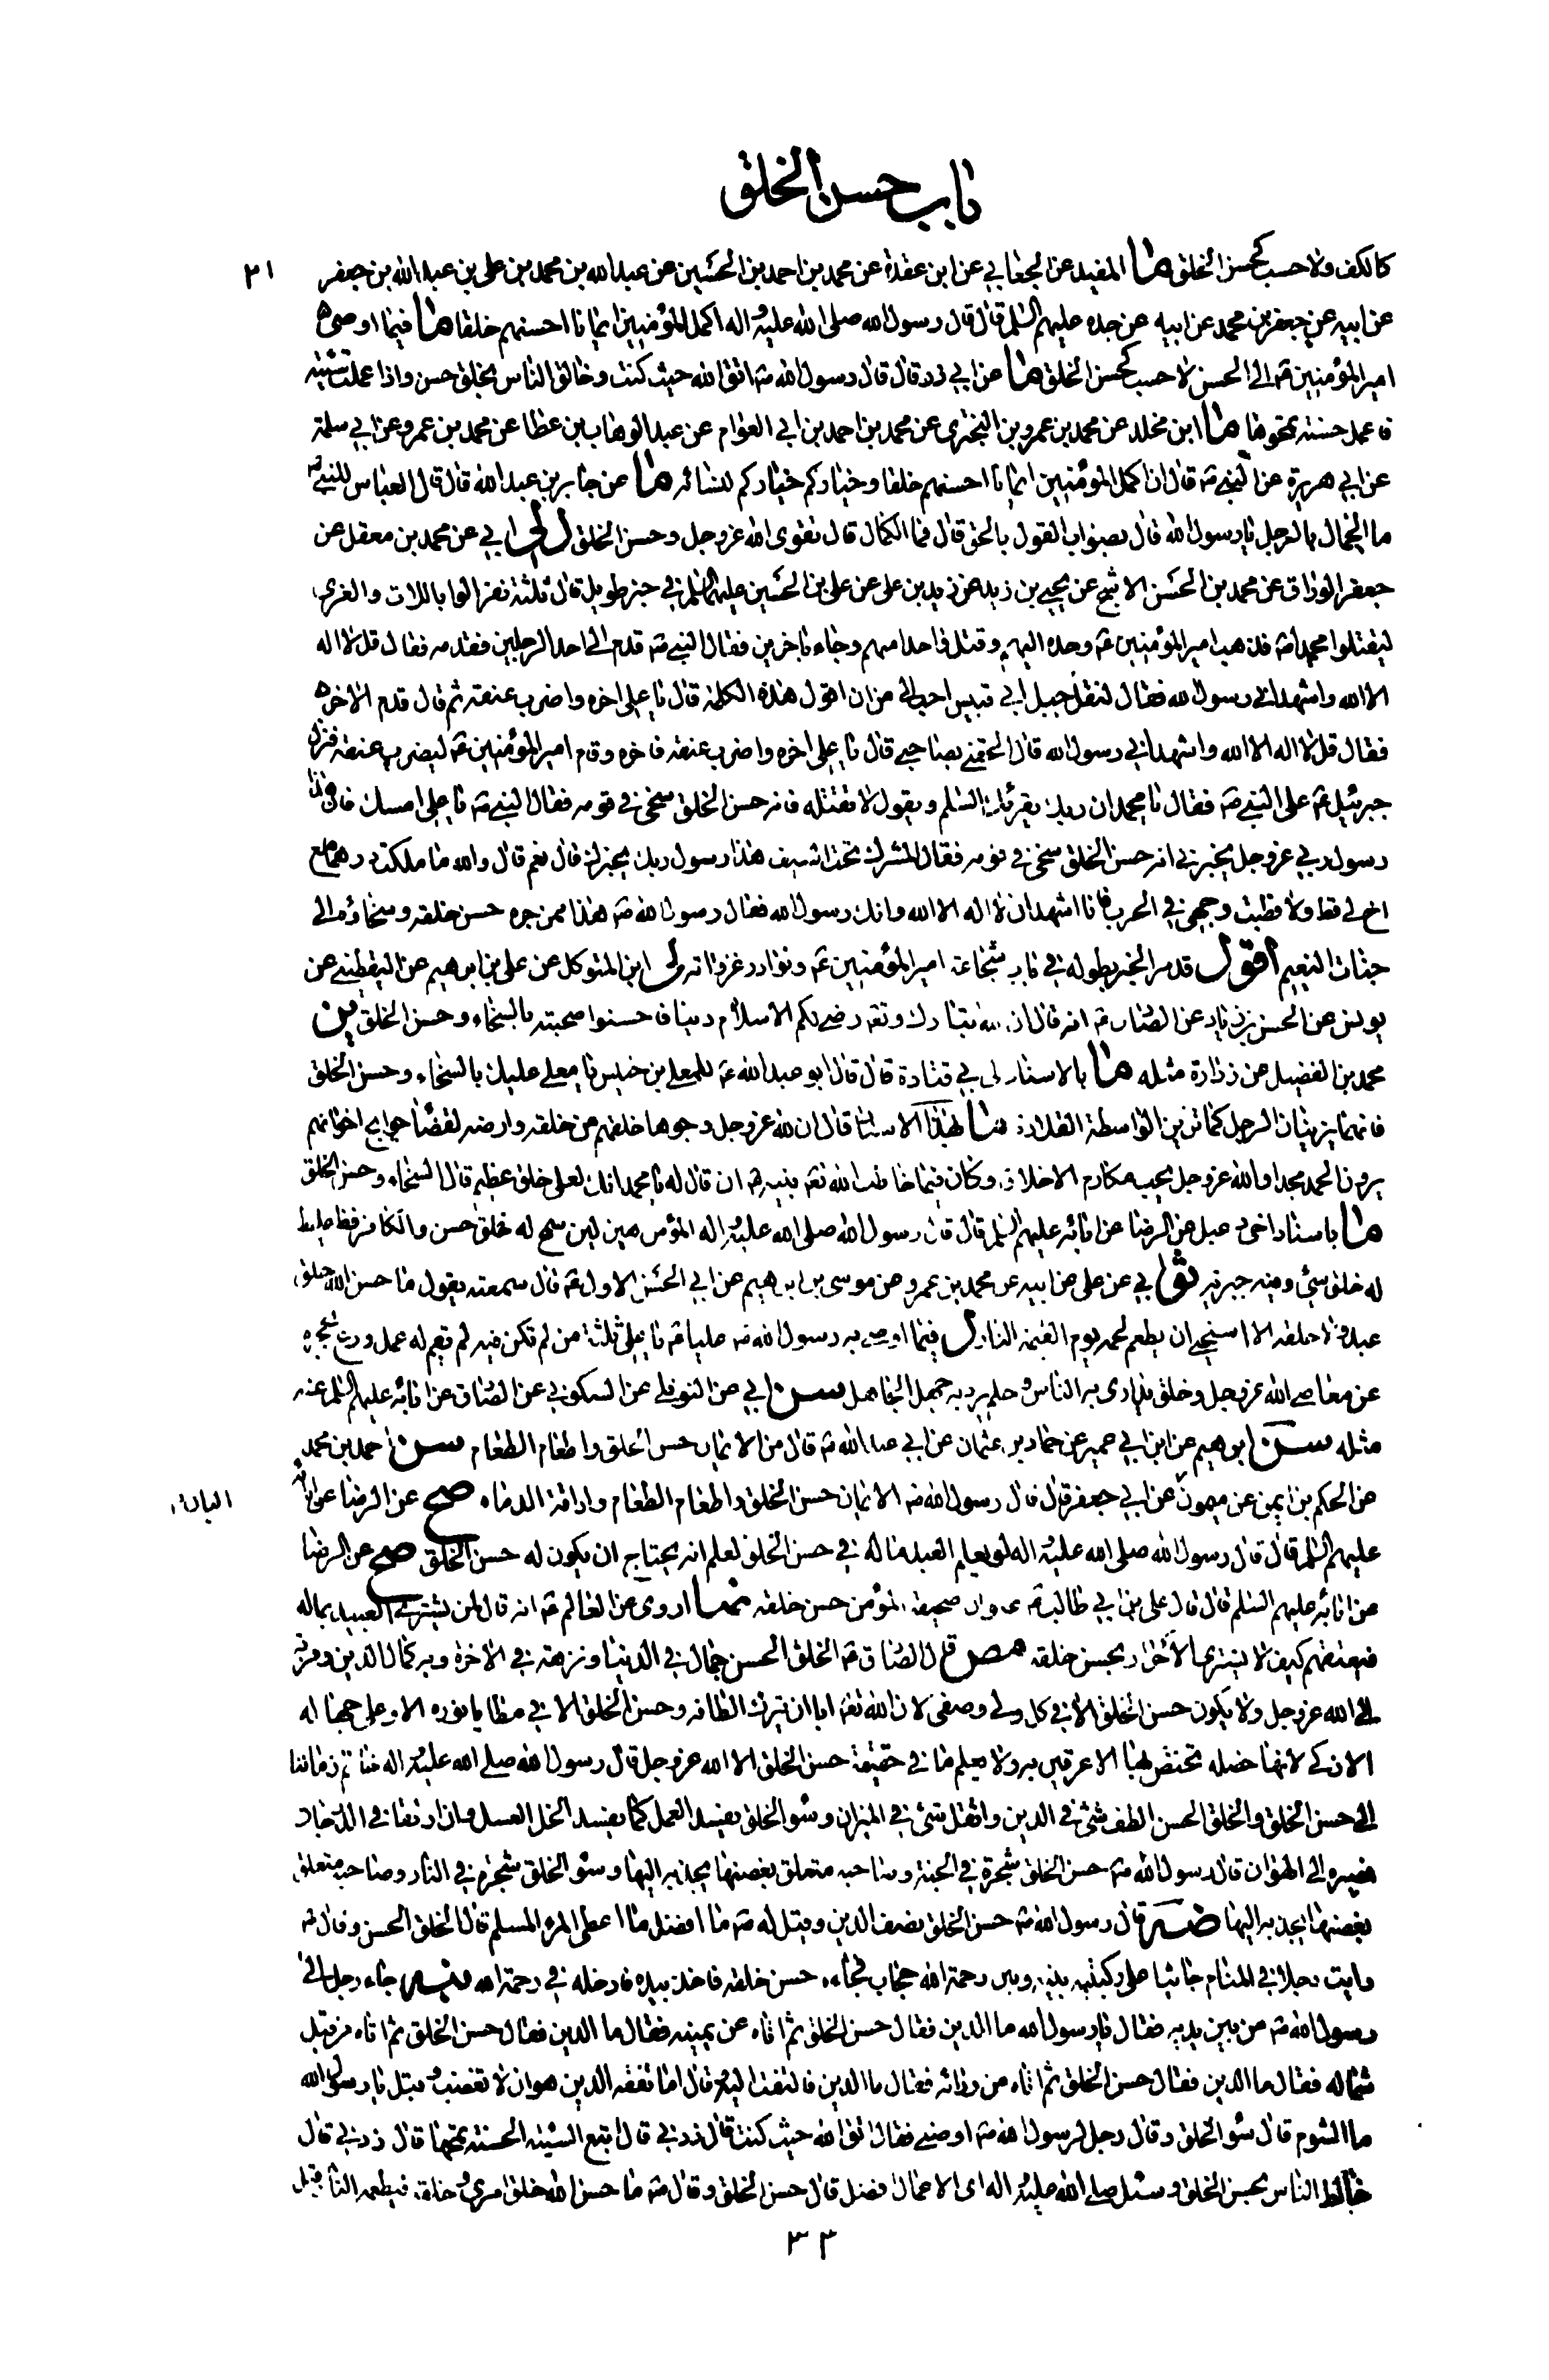 باب حسن الخلق
٢١
كالكف ولا حسب كحسن الخلق ما المفيد عن الجعابي عن ابن عقدة عن محمد بن احمد بن الحسين عن عبد الله بن محمد بن علي بن عبد الله بن جعفر
عن ابيه عن جعفر بن محمد عن ابيه عن جده عليهم السلم قال قال رسول الله صلى الله عليه واله اكمل المؤمنين ايمانا احسنهم خلقا ما فيما اوصى به
امير المؤمنين ع الى الحسن لا حسب كحسن الخلق ما عن ابي ذر قال قال رسول الله ص اتق الله حيث كنت وخالق الناس بخلق حسن واذا عملت سيئة
فاعمل حسنة تمحوها ما ابن مخلد عن محمد بن عمرو بن البختري عن محمد بن احمد بن ابي العوام عن عبد الوهاب بن عطا عن محمد بن عمرو عن ابي سلمة
عن ابي هريرة عن النبي ص قال ان اكمل المؤمنين ايمانا احسنهم خلقا وخياركم خياركم لنسائه ما عن جابر بن عبد الله قال قال العباس للنبي ص
ما الجمال بالرجل يا رسول الله قال بصواب القول بالحق قال فما الكمال قال تقوى الله عز وجل وحسن الخلق ل لي ابي عن محمد بن معقل عن
جعفر الوراق عن محمد بن الحسن الاشج عن يحيى بن زيد عن زيد بن علي عن علي بن الحسين عليهما السلم في خبر طويل قال ثلثة نفر الوا باللات والعزى
ليقتلوا محمدا ص فذهب امير المؤمنين ع وحده اليهم وقتل واحدا منهم وجاء باخرين فقال النبي ص قدم الي احد الرجلين فقدمه فقال قل لا اله
الا الله واشهد اني رسول الله فقال لنقل جبل ابي قبيس احب الي من ان اقول هذه الكلمة قال يا علي اخره واضرب عنقه ثم قال قدم الاخر
فقال قل لا اله الا الله واشهد اني رسول الله قال الحقني بصاحبي قال يا علي اخره واضرب عنقه فاخره وقام امير المؤمنين ع ليضرب عنقه فنزل
جبرئيل ع على النبي ص فقال يا محمد ان ربك يقرئك السلم ويقول لا تقتله فانه حسن الخلق سخي في قومه فقال النبي ص يا علي امسك فان هذا
رسول ربي عز وجل يخبرني انه حسن الخلق سخي في قومه فقال المشرك تحت السيف هذا رسول ربك يخبرك قال نعم قال والله ما ملكت درهما مع
اخ لي قط ولا قطبت وجهي في الحرب فانا اشهد ان لا اله الا الله وانك رسول الله فقال رسول الله ص هذا ممن جره حسن خلقه وسخاؤه الى
جنات النعيم اقول قد مر الخبر بطوله في باب شجاعة امير المؤمنين ع ونوادر غزواته لي ابن المتوكل عن علي بن ابرهيم عن اليقطيني عن
يونس عن الحسن بن زياد عن الصادق ع انه قال ان الله تبارك وتعالى رضي لكم الاسلام دينا فاحسنوا صحبته بالسخاء وحسن الخلق ين
محمد بن الفضيل عن زرارة مثله ما بالاسناد ابي قتادة قال قال ابو عبد الله ع للمعلى بن خنيس يا معلى عليك بالسخاء وحسن الخلق
فانهما يزينان الرجل كما تزين الواسطة القلادة ما بهذا الاسناد قال ان لله عز وجل وجوها خلقهم من خلقه وارضه لقضاء حوايج اخوانهم
يرون الحمد مجدا والله عز وجل يحب مكارم الاخلاق وكان فيما خاطب الله تعالى نبيه ص ان قال له يا محمد انك لعلى خلق عظيم قال السخاء وحسن الخلق
ما باسناد اخي دعبل عن الرضا عن ابائه عليهم السلم قال قال رسول الله صلى الله عليه واله المؤمن هين لين سمح له خلق حسن والكافر فظ غليظ
له خلق سيئ وفيه جبرية ثو ابي عن علي عن ابيه عن محمد بن عمرو عن موسى بن ابرهيم عن ابي الحسن الاول ع قال سمعته يقول ما حسن الله خلق
عبد ولا خلقه الا استحيى ان يطعم لحمه يوم القيمة النار ل فيما اوصى به رسول الله ص عليا ع يا علي ثلثة من لم تكن فيه لم يقم له عمل ورع يحجزه
عن معاصي الله عز وجل وخلق يداري به الناس وحلم يرد به جهل الجاهل سن ابي عن النوفلي عن السكوني عن الصادق عن ابائه عليهم السلم عنه
مثله سن ابرهيم عن ابن ابي عمير عن حماد بن عثمان عن ابي عبد الله ع قال من الايمان حسن الخلق واطعام الطعام سن احمد بن محمد
عن الحكم بن ايمن عن ميمون عن ابي جعفر قال قال رسول الله ص الايمان حسن الخلق واطعام الطعام واراقة الدماء صح عن الرضا عن ابائه
عليهم السلم قال قال رسول الله صلى الله عليه واله لو يعلم العبد ما له في حسن الخلق لعلم انه يحتاج ان يكون له حسن الخلق صح عن الرضا
عن ابائه عليهم السلم قال قال علي بن ابي طالب ع عنوان صحيفة المؤمن حسن خلقه ضا اروي عن العالم ع انه قال لمن يشتري العبيد بماله
فيعتقهم كيف لا يشتري الاحرار بحسن خلقه مص قال الصادق ع الخلق الحسن جمال في الدنيا ونزهة في الاخرة وبه كمال الدين وقربة
الى الله عز وجل ولا يكون حسن الخلق الا في كل ولي وصفي لان الله تعالى ابا ان يترك الطافه وحسن الخلق الا في مطايا نوره الاعلى وجماله
الازكى لانها خصلة تختص بها الاعرفين به ولا يعلم ما في حقيقة حسن الخلق الا الله عز وجل قال رسول الله صلى الله عليه واله حاتم زماننا
الى حسن الخلق والخلق الحسن الطف شئ في الدين واثقل شئ في الميزان وسوء الخلق يفسد العمل كما يفسد الخل العسل وان ارتقا في الدرجات
فمصيره الى الهوان قال رسول الله ص حسن الخلق شجرة في الجنة وصاحبه متعلق بغصنها يجذبه اليها وسوء الخلق شجرة في النار وصاحبه متعلق
بغصنها يجذبه اليها ضه قال رسول الله ص حسن الخلق نصف الدين وقيل له ص ما افضل ما اعطي المرء المسلم قال الخلق الحسن وقال ص
رايت رجلا في المنام جاثيا على ركبتيه بينه وبين رحمة الله حجاب فجاءه حسن خلقه فاخذ بيده فادخله في رحمة الله نبه جاء رجل الى
رسول الله ص من بين يديه فقال يا رسول الله ما الدين فقال حسن الخلق ثم اتاه عن يمينه فقال ما الدين فقال حسن الخلق ثم اتاه من قبل
شماله فقال ما الدين فقال حسن الخلق ثم اتاه من ورائه فقال ما الدين فالتفت اليه وقال اما تفقه الدين هو ان لا تغضب وقيل يا رسول الله
ما الشوم قال سوء الخلق وقال رجل لرسول الله ص اوصني فقال اتق الله حيث كنت قال زدني قال اتبع السيئة الحسنة تمحها قال زدني قال
خالط الناس بحسن الخلق وسئل صلى الله عليه واله اي الاعمال افضل قال حسن الخلق وقال ص ما حسن الله خلق امرئ وخلقه فيطعمه النار وقيل
٣٣